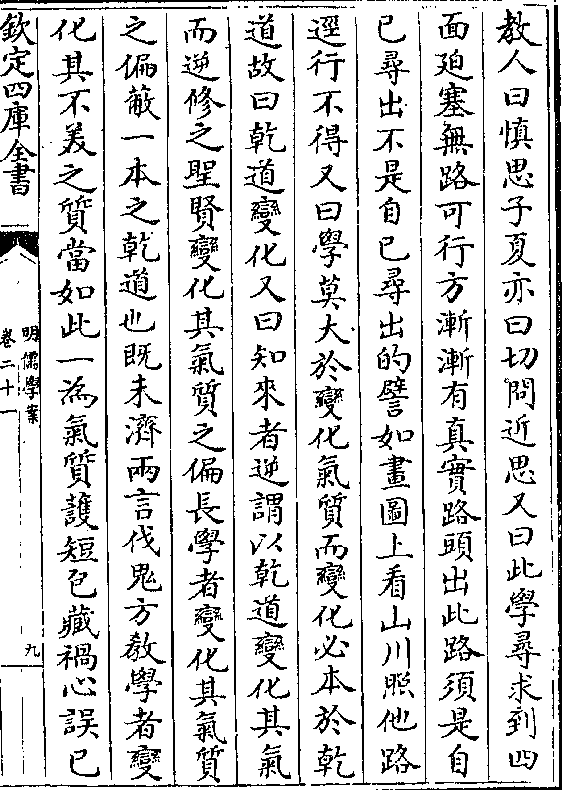 教人曰慎思子夏亦曰切問近思又曰此學尋求到四
面廹塞無路可行方漸漸有真實路頭出此路須是自
已尋出不是自已尋出的譬如畫圖上看山川照他路
逕行不得又曰學莫大於變化氣質而變化必本於乾
道故曰乾道變化又曰知來者逆謂以乾道變化其氣
而逆修之聖賢變化其氣質之偏長學者變化其氣質
之偏蔽一本之乾道也既未濟兩言伐鬼方教學者變
化其不美之質當如此一為氣質護短包藏禍心誤已
欽定四庫全書
明儒學案
卷二十一
九